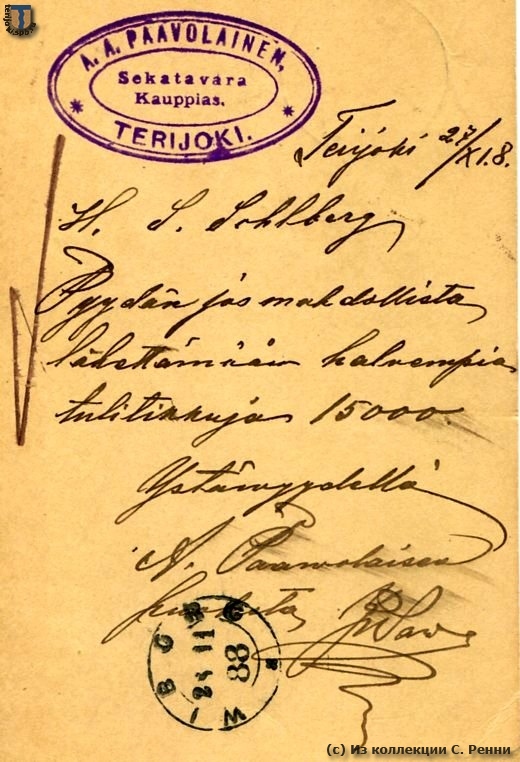 A. A. PAAVOLAINEN,
Sekatavara
Kauppias.
TERIJOKI.
Terijoki 27/XI.8.
H. S. Sohlberg
Pyydän jos mahdollista
lähettämään halvempia
tulitikkuja 15000.
Ystävyydellä
A. Paavolaisen
puolesta
WIBORG
11
88
(c) Из коллекции С. Ренни